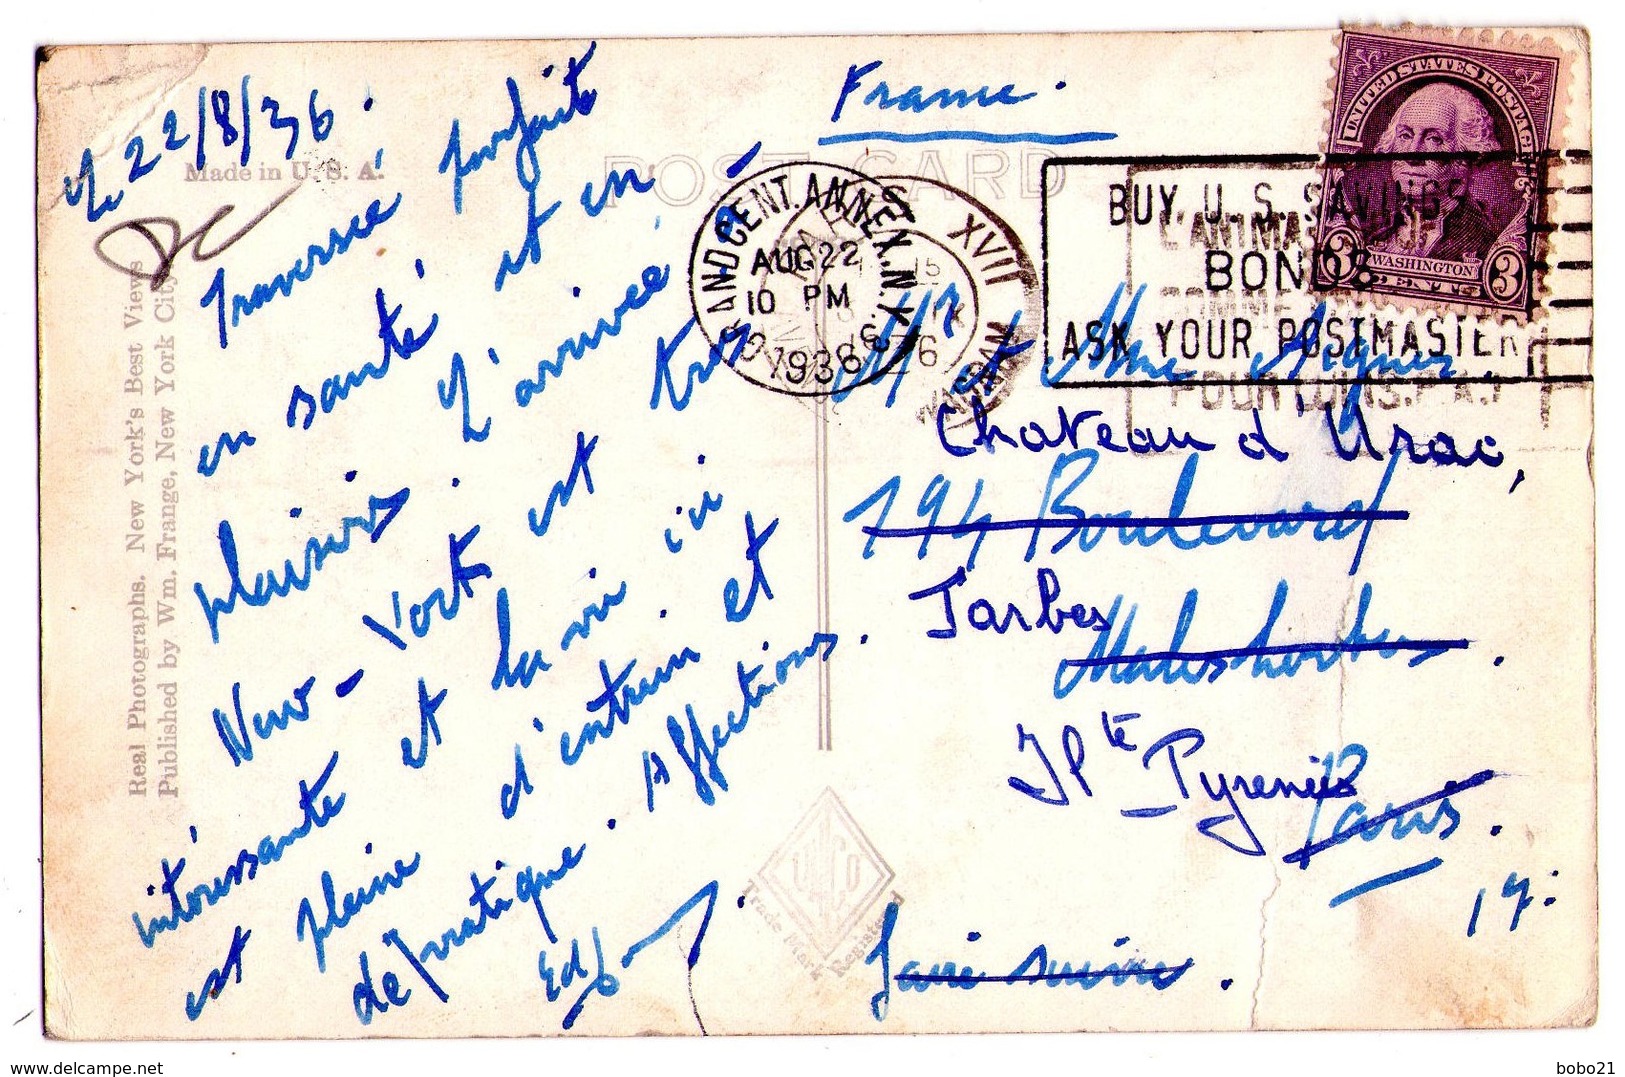 Le 22/8/36.
Traversée parfaite
en santé et en
plaisirs. L'arrivée à
New-York est très
intéressante et la vie ici
est pleine d'entrain et
de pratique. Affections.
France.
POST CARD
Made in U. S. A.
Real Photographs. New York's Best Views
Published by Wm. Frange, New York City.
GRAND CENT. ANNEX. N.Y.
AUG 22
10 PM
1936
XVII
BUY U. S. SAVINGS
BONDS
ASK YOUR POSTMASTER
UNITED STATES POSTAGE
WASHINGTON
3 CENTS 3
Mr et Mme
Chateau d'Urac,
194 Boulevard
Tarbes
Malesherbes.
Htes Pyrenées
Paris.
17.
faire suivre.
Trade Mark Registered
bobo21
https://www.delcampe.net